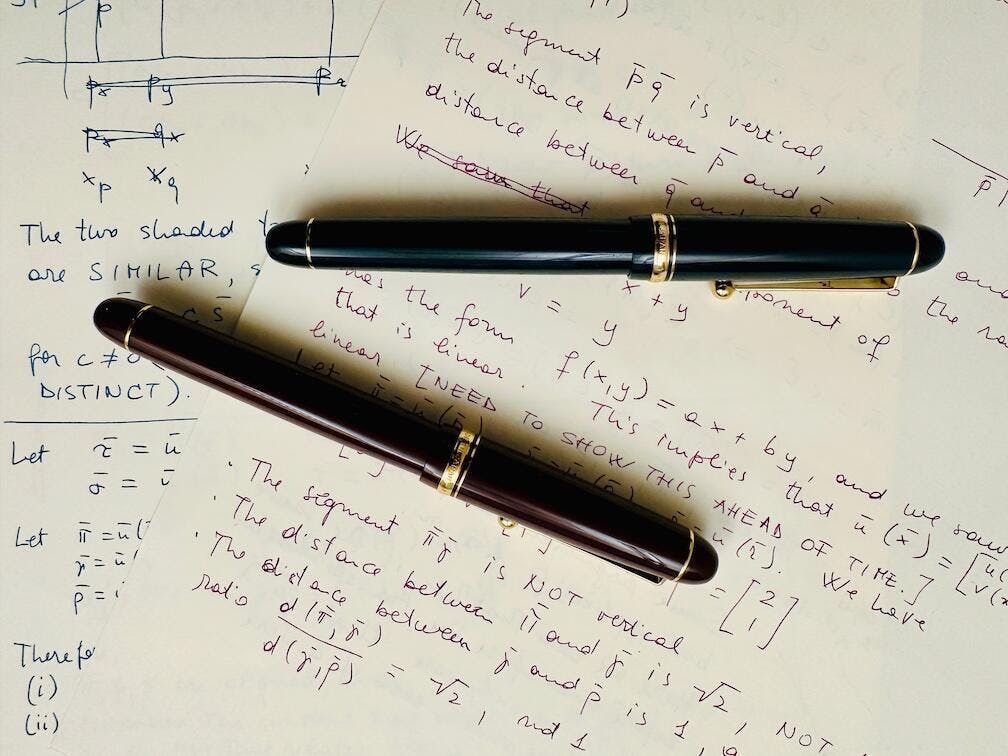 P
Px Py Pa
Px qx
xp xq
The two shaded
are SIMILAR, s
c s̄
for c ≠ 0
DISTINCT).
Let τ̄ = ū
σ̄ = v̄
Let π̄ = ū(
γ̄ = ū
ρ̄ =
Therefo
(i)
(ii)
The segment p̄q̄ is vertical,
the distance between p̄ and q̄
distance between q̄ and
We saw that
p̄
and
v = x + y
y
component of the
has the form f(x,y) = ax + by, and we saw
that is linear. This implies that ū(x̄) = [u(
v(x
linear [NEED TO SHOW THIS AHEAD OF TIME.] We have
Let π̄ = ū(p̄)
ū(r̄). = [2
1]
· The segment π̄γ̄ is NOT vertical
· The distance between π̄ and γ̄ is √2, NOT
· The distance between γ̄ and ρ̄ is 1,
ratio d(π̄, γ̄)
d(γ̄, ρ̄) = √2, not 1